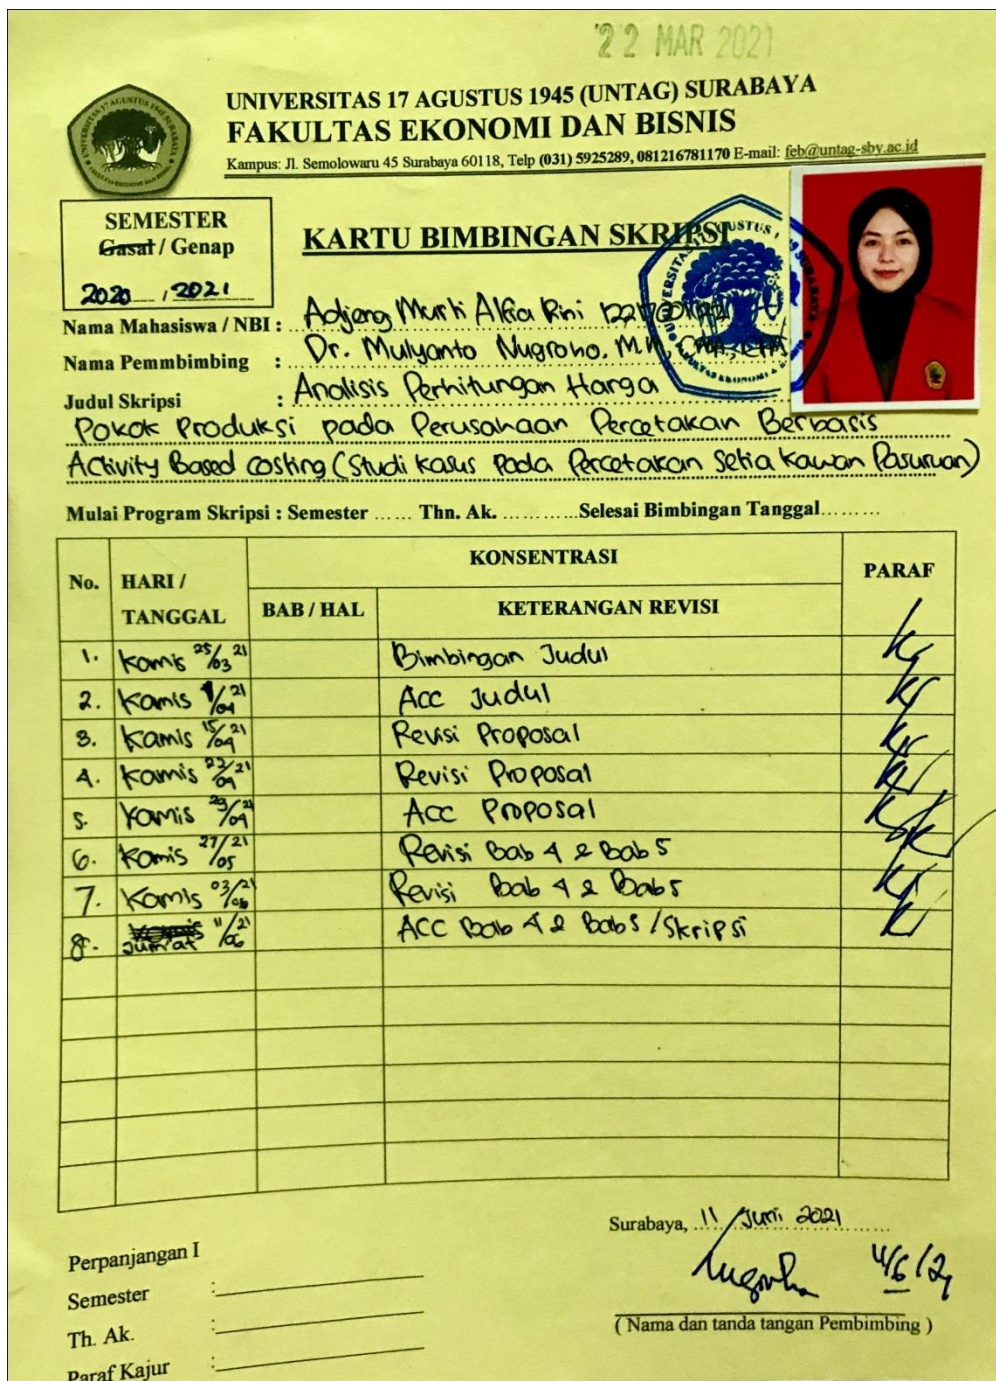 22 MAR 2021
UNIVERSITAS 17 AGUSTUS 1945 (UNTAG) SURABAYA
FAKULTAS EKONOMI DAN BISNIS
Kampus: Jl. Semolowaru 45 Surabaya 60118, Telp (031) 5925289, 081216781170 E-mail: feb@untag-sby.ac.id
SEMESTER
Gasal / Genap
2020 / 2021
KARTU BIMBINGAN SKRIPSI
Nama Mahasiswa / NBI : Adjeng Murti Alfia Rini
Nama Pemmbimbing : Dr. Mulyanto Nugroho. M.M, CMA, CPA
Judul Skripsi : Analisis Perhitungan Harga
Pokok Produksi pada Perusahaan Percetakan Berbasis
Activity Based Costing (Studi Kasus Pada Percetakan Setia Kawan Pasuruan)
Mulai Program Skripsi : Semester ...... Thn. Ak. ............Selesai Bimbingan Tanggal.........
No. HARI / TANGGAL KONSENTRASI PARAF
BAB / HAL KETERANGAN REVISI
1. Kamis 25/03 21 Bimbingan Judul
2. Kamis 1/04 21 Acc Judul
3. Kamis 15/04 21 Revisi Proposal
4. Kamis 22/04 21 Revisi Proposal
5. Kamis 29/04 21 Acc Proposal
6. Kamis 27/05 21 Revisi Bab 4 & Bab 5
7. Kamis 03/06 21 Revisi Bab 4 & Bab 5
8. Jum'at 11/06 21 ACC Bab 4 & Bab 5 / Skripsi
Surabaya, 11 Juni 2021
Perpanjangan I
Semester :
Th. Ak. :
Paraf Kajur :
( Nama dan tanda tangan Pembimbing )